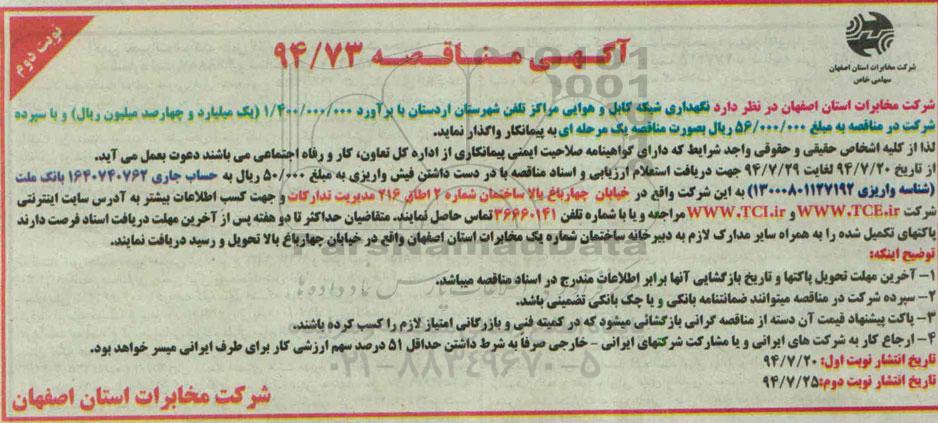 نوبت دوم
شرکت مخابرات استان اصفهان
سهامی خاص
آگهی مناقصه ۹۴/۷۳
شرکت مخابرات استان اصفهان در نظر دارد نگهداری شبکه کابل و هوایی مراکز تلفن شهرستان اردستان با برآورد ۱/۴۰۰/۰۰۰/۰۰۰ (یک میلیارد و چهارصد میلیون ریال) و با سپرده
شرکت در مناقصه به مبلغ ۵۶/۰۰۰/۰۰۰ ریال بصورت مناقصه یک مرحله ای به پیمانکار واگذار نماید.
لذا از کلیه اشخاص حقیقی و حقوقی واجد شرایط که دارای گواهینامه صلاحیت ایمنی پیمانکاری از اداره کل تعاون، کار و رفاه اجتماعی می باشند دعوت بعمل می آید.
از تاریخ ۹۴/۷/۲۰ لغایت ۹۴/۷/۲۹ جهت دریافت استعلام ارزیابی و اسناد مناقصه با در دست داشتن فیش واریزی به مبلغ ۵۰/۰۰۰ ریال به حساب جاری ۱۶۴۰۷۴۰۷۶۲ بانک ملت
(شناسه واریزی ۱۳۰۰۰۸۰۱۱۲۷۱۹۲) به این شرکت واقع در خیابان چهارباغ بالا ساختمان شماره ۲ اطاق ۲۱۶ مدیریت تدارکات و جهت کسب اطلاعات بیشتر به آدرس سایت اینترنتی
شرکت WWW.TCE.ir و WWW.TCI.ir مراجعه و یا با شماره تلفن ۳۶۶۶۰۱۴۱ تماس حاصل نمایند. متقاضیان حداکثر تا دو هفته پس از آخرین مهلت دریافت اسناد فرصت دارند
پاکتهای تکمیل شده را به همراه سایر مدارک لازم به دبیرخانه ساختمان شماره یک مخابرات استان اصفهان واقع در خیابان چهارباغ بالا تحویل و رسید دریافت نمایند.
توضیح اینکه:
۱- آخرین مهلت تحویل پاکتها و تاریخ بازگشایی آنها برابر اطلاعات مندرج در اسناد مناقصه میباشد.
۲- سپرده شرکت در مناقصه میتوانند ضمانتنامه بانکی و یا چک بانکی تضمینی باشد.
۳- پاکت پیشنهاد قیمت آن دسته از مناقصه گرانی بازگشائی میشود که در کمیته فنی و بازرگانی امتیاز لازم را کسب کرده باشند.
۴- ارجاع کار به شرکت های ایرانی و یا مشارکت شرکتهای ایرانی - خارجی صرفاً به شرط داشتن حداقل ۵۱ درصد سهم ارزشی کار برای طرف ایرانی میسر خواهد بود.
تاریخ انتشار نوبت اول: ۹۴/۷/۲۰
تاریخ انتشار نوبت دوم:۹۴/۷/۲۵
شرکت مخابرات استان اصفهان
ParsNamadData
۰۲۱-۸۸۳۴۹۶۷۰-۵